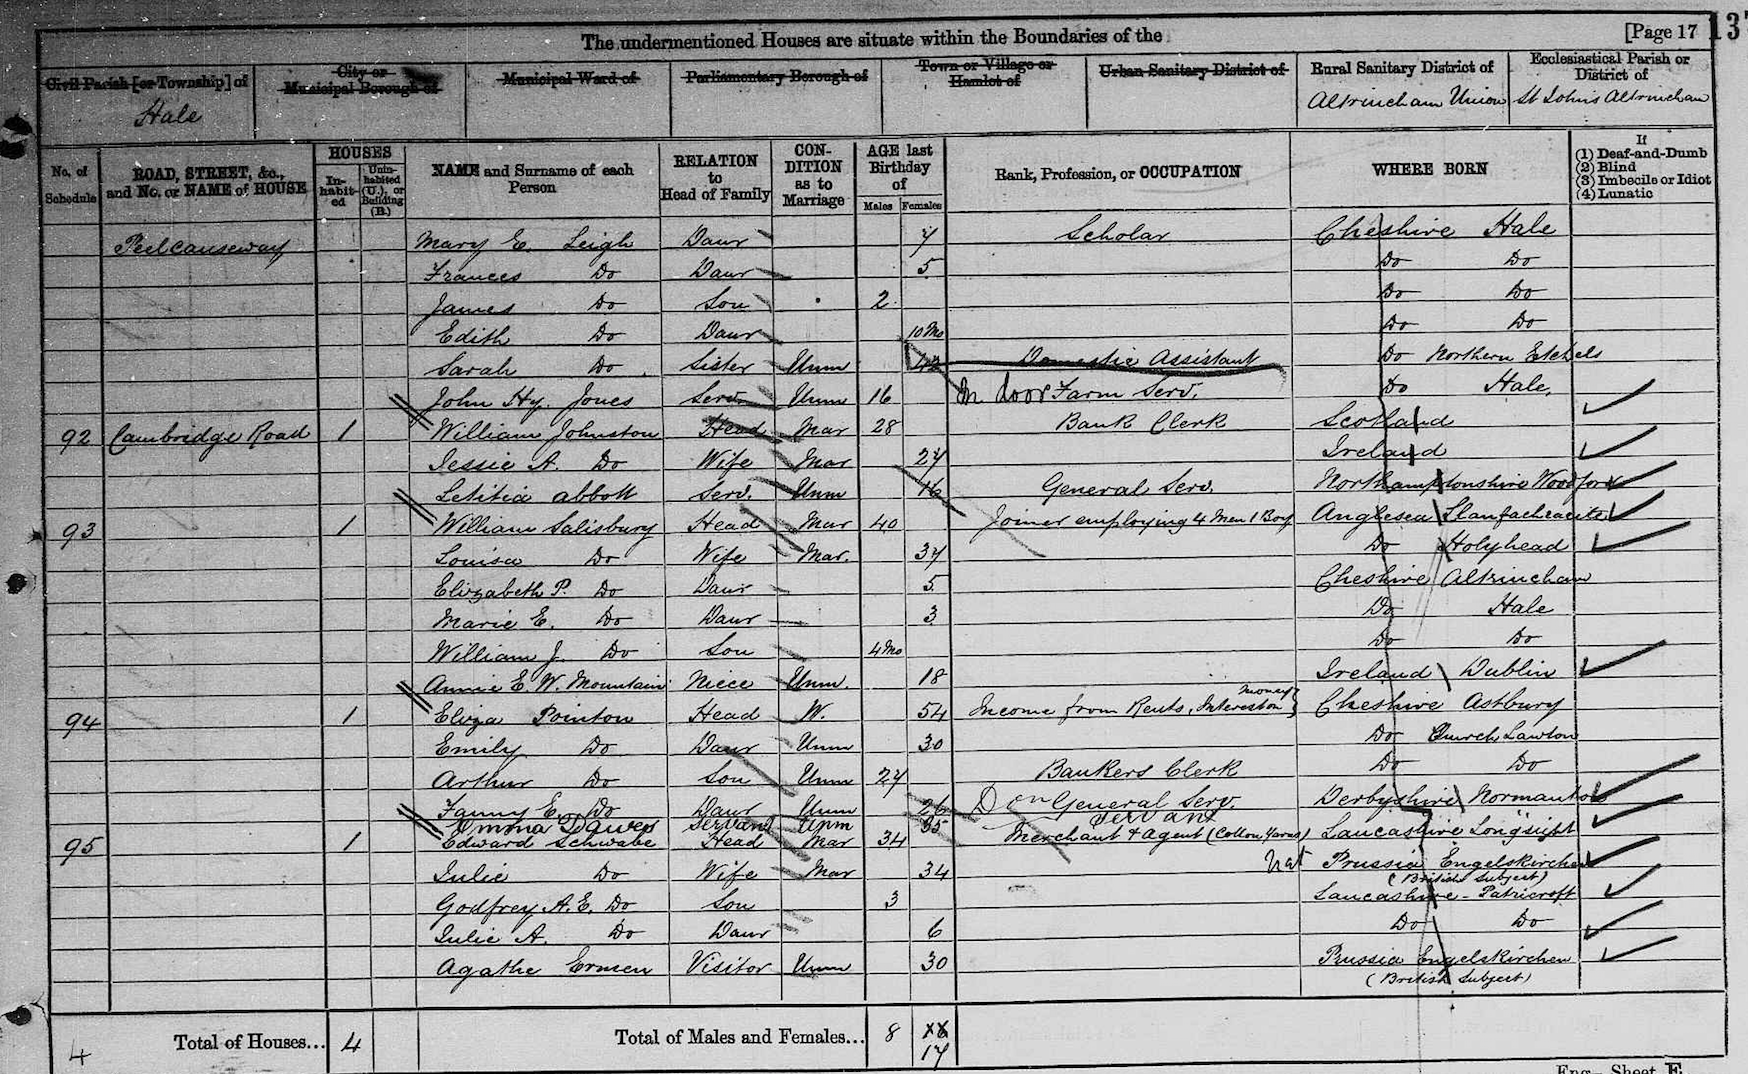 The undermentioned Houses are situate within the Boundaries of the [Page 17 13
Civil Parish [or Township] of City or Municipal Borough of Municipal Ward of Parliamentary Borough of Town or Village or Hamlet of Urban Sanitary District of Rural Sanitary District of Ecclesiastical Parish or District of
Hale Altrincham Union St John's Altrincham
No. of Schedule ROAD, STREET, &c., and No. or NAME of HOUSE HOUSES In-habit-ed Unin-habited (U.), or Building (B.) NAME and Surname of each Person RELATION to Head of Family CON-DITION as to Marriage AGE last Birthday of Males Females Rank, Profession, or OCCUPATION WHERE BORN If (1) Deaf-and-Dumb (2) Blind (3) Imbecile or Idiot (4) Lunatic
Peelcauseway Mary E. Leigh Daur 7 Scholar Cheshire Hale
Frances Do Daur 5 Do Do
James Do Son 2 Do Do
Edith Do Daur 10 Mo Do Do
Sarah Do Sister Unm Domestic Assistant Do Northern Etchels
John Hy. Jones Serv. Unm 16 In door Farm Serv. Do Hale
92 Cambridge Road 1 William Johnston Head Mar 28 Bank Clerk Scotland
Jessie A. Do Wife Mar 27 Ireland
Letitia Abbott Serv. Unm 16 General Serv. Northamptonshire Woodford
93 1 William Salisbury Head Mar 40 Joiner employing 4 Men 1 Boy Anglesea
Louisa Do Wife Mar. 37 Do Holyhead
Elizabeth P. Do Daur 5 Cheshire Altrincham
Marie E. Do Daur 3 Do Hale
William J. Do Son 4 Mo Do Do
Annie E. W. Mountain Niece Unm. 18 Ireland Dublin
94 1 Eliza Pointon Head W. 54 Income from Rents, Interest on money Cheshire Astbury
Emily Do Daur Unm 30 Do Church Lawton
Arthur Do Son Unm 27 Bankers Clerk Do Do
Fanny E. Do Daur Unm 26 General Serv. Derbyshire Normanton
Emma Dawes Servant Unm 35 Servant
95 1 Edward Schwabe Head Mar 34 Merchant & Agent (Cotton Yarns) Lancashire Longsight
Julie Do Wife Mar 34 Nat Prussia Engelskirchen
(British Subject)
Godfrey A. E. Do Son 3 Lancashire - Patricroft
Julie A. Do Daur 6 Do Do
Agathe Ermen Visitor Unm 30 Prussia Engelskirchen
(British Subject)
4 Total of Houses... 4 Total of Males and Females... 8 17
Eng.— Sheet E.